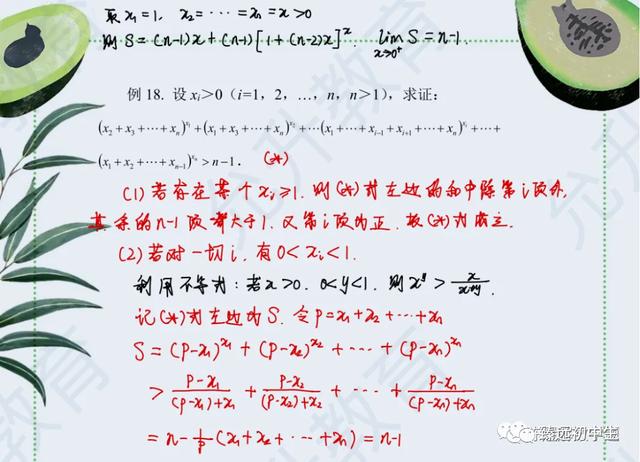 取 x₁=1, x₂=⋯=xₙ=x>0
则 S=(n-1)x+(n-1)[1+(n-2)x]ˣ. lim_{x→0⁺} S=n-1.
例 18. 设 xᵢ>0 (i=1, 2, …, n, n>1), 求证:
(x₂+x₃+⋯+xₙ)^{x₁}+(x₁+x₃+⋯+xₙ)^{x₂}+⋯(x₁+⋯+x_{i-1}+x_{i+1}+⋯+xₙ)^{xᵢ}+⋯+
(x₁+x₂+⋯+x_{n-1})^{xₙ}>n-1. (*)
(1) 若存在某个 xᵢ≥1, 则(*)式左边的和中除第 i 项外,
其余的 n-1 项都大于1. 又第 i 项为正, 故(*)式成立.
(2) 若对一切 i, 有 0<xᵢ<1.
利用不等式: 若 x>0, 0<y<1, 则 x^y > x/(x+y).
记(*)式左边为 S. 令 p=x₁+x₂+⋯+xₙ
S=(p-x₁)^{x₁}+(p-x₂)^{x₂}+⋯+(p-xₙ)^{xₙ}
> (p-x₁)/((p-x₁)+x₁) + (p-x₂)/((p-x₂)+x₂) + ⋯ + (p-xₙ)/((p-xₙ)+xₙ)
= n-1/p(x₁+x₂+⋯+xₙ)=n-1
臻远初中生
允升教育